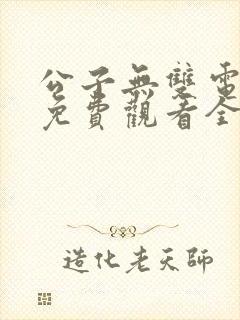 公子無雙電
免費觀看全
造化老天師